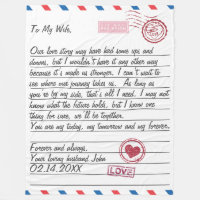 To My Wife,
Our love story may have had some ups and
downs, but I wouldn't have it any other way
because it made us stronger. I can't wait to
see where our journey takes us. As long as
you're by my side, that's all I need. I may not
know what the future holds, but I know one
thing for sure, we'll be together.
You are my today, my tomorrow and my forever.
Forever and always,
Your loving husband John
02.14.20XX
LOVE